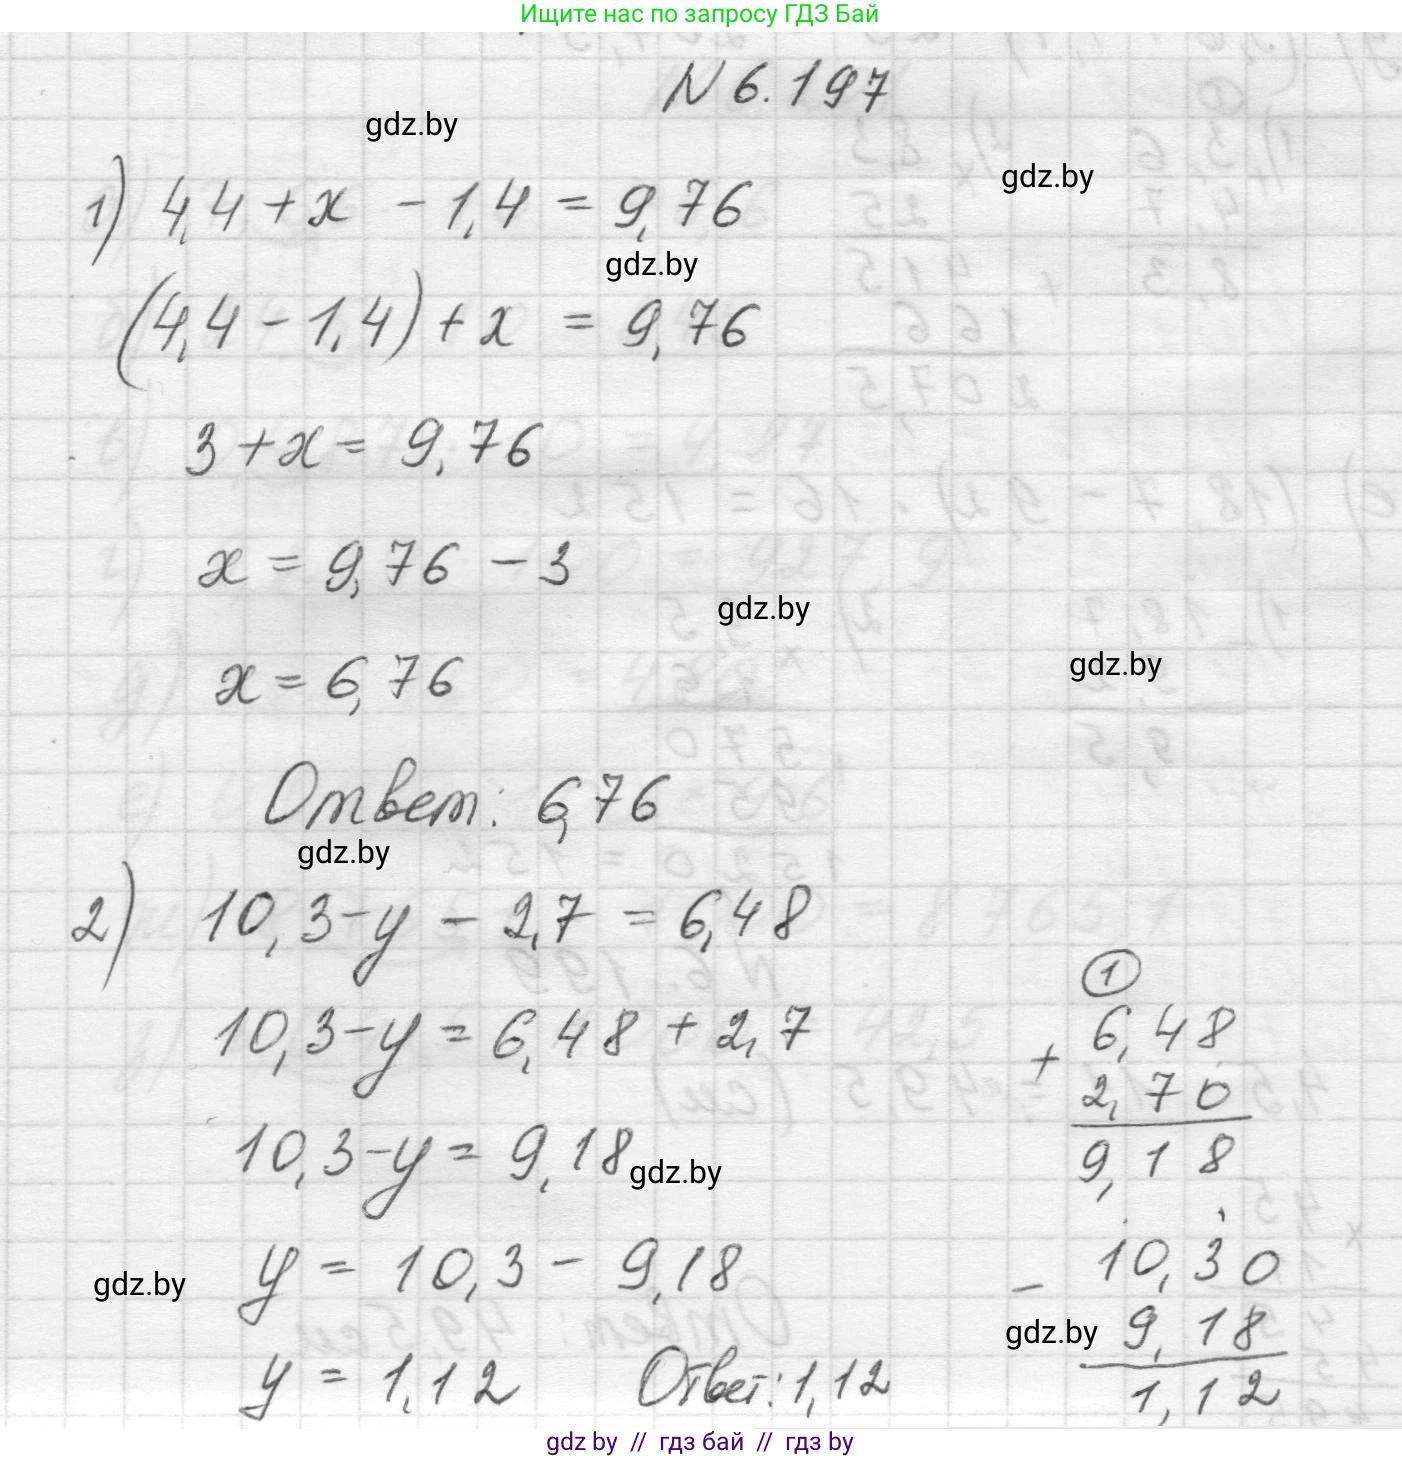 Ищите нас по запросу ГДЗ Бай
N 6.197
gdz.by
gdz.by
1) 4,4 + x - 1,4 = 9,76
gdz.by
(4,4 - 1,4) + x = 9,76
3 + x = 9,76
x = 9,76 - 3
gdz.by
gdz.by
x = 6,76
Ответ: 6,76
gdz.by
2) 10,3 - y - 2,7 = 6,48
10,3 - y = 6,48 + 2,7
10,3 - y = 9,18
gdz.by
y = 10,3 - 9,18
gdz.by
y = 1,12 Ответ: 1,12
1
+ 6,48
2,70
9,18
- 10,30
gdz.by 9,18
1,12
gdz by // гдз бай // гдз by